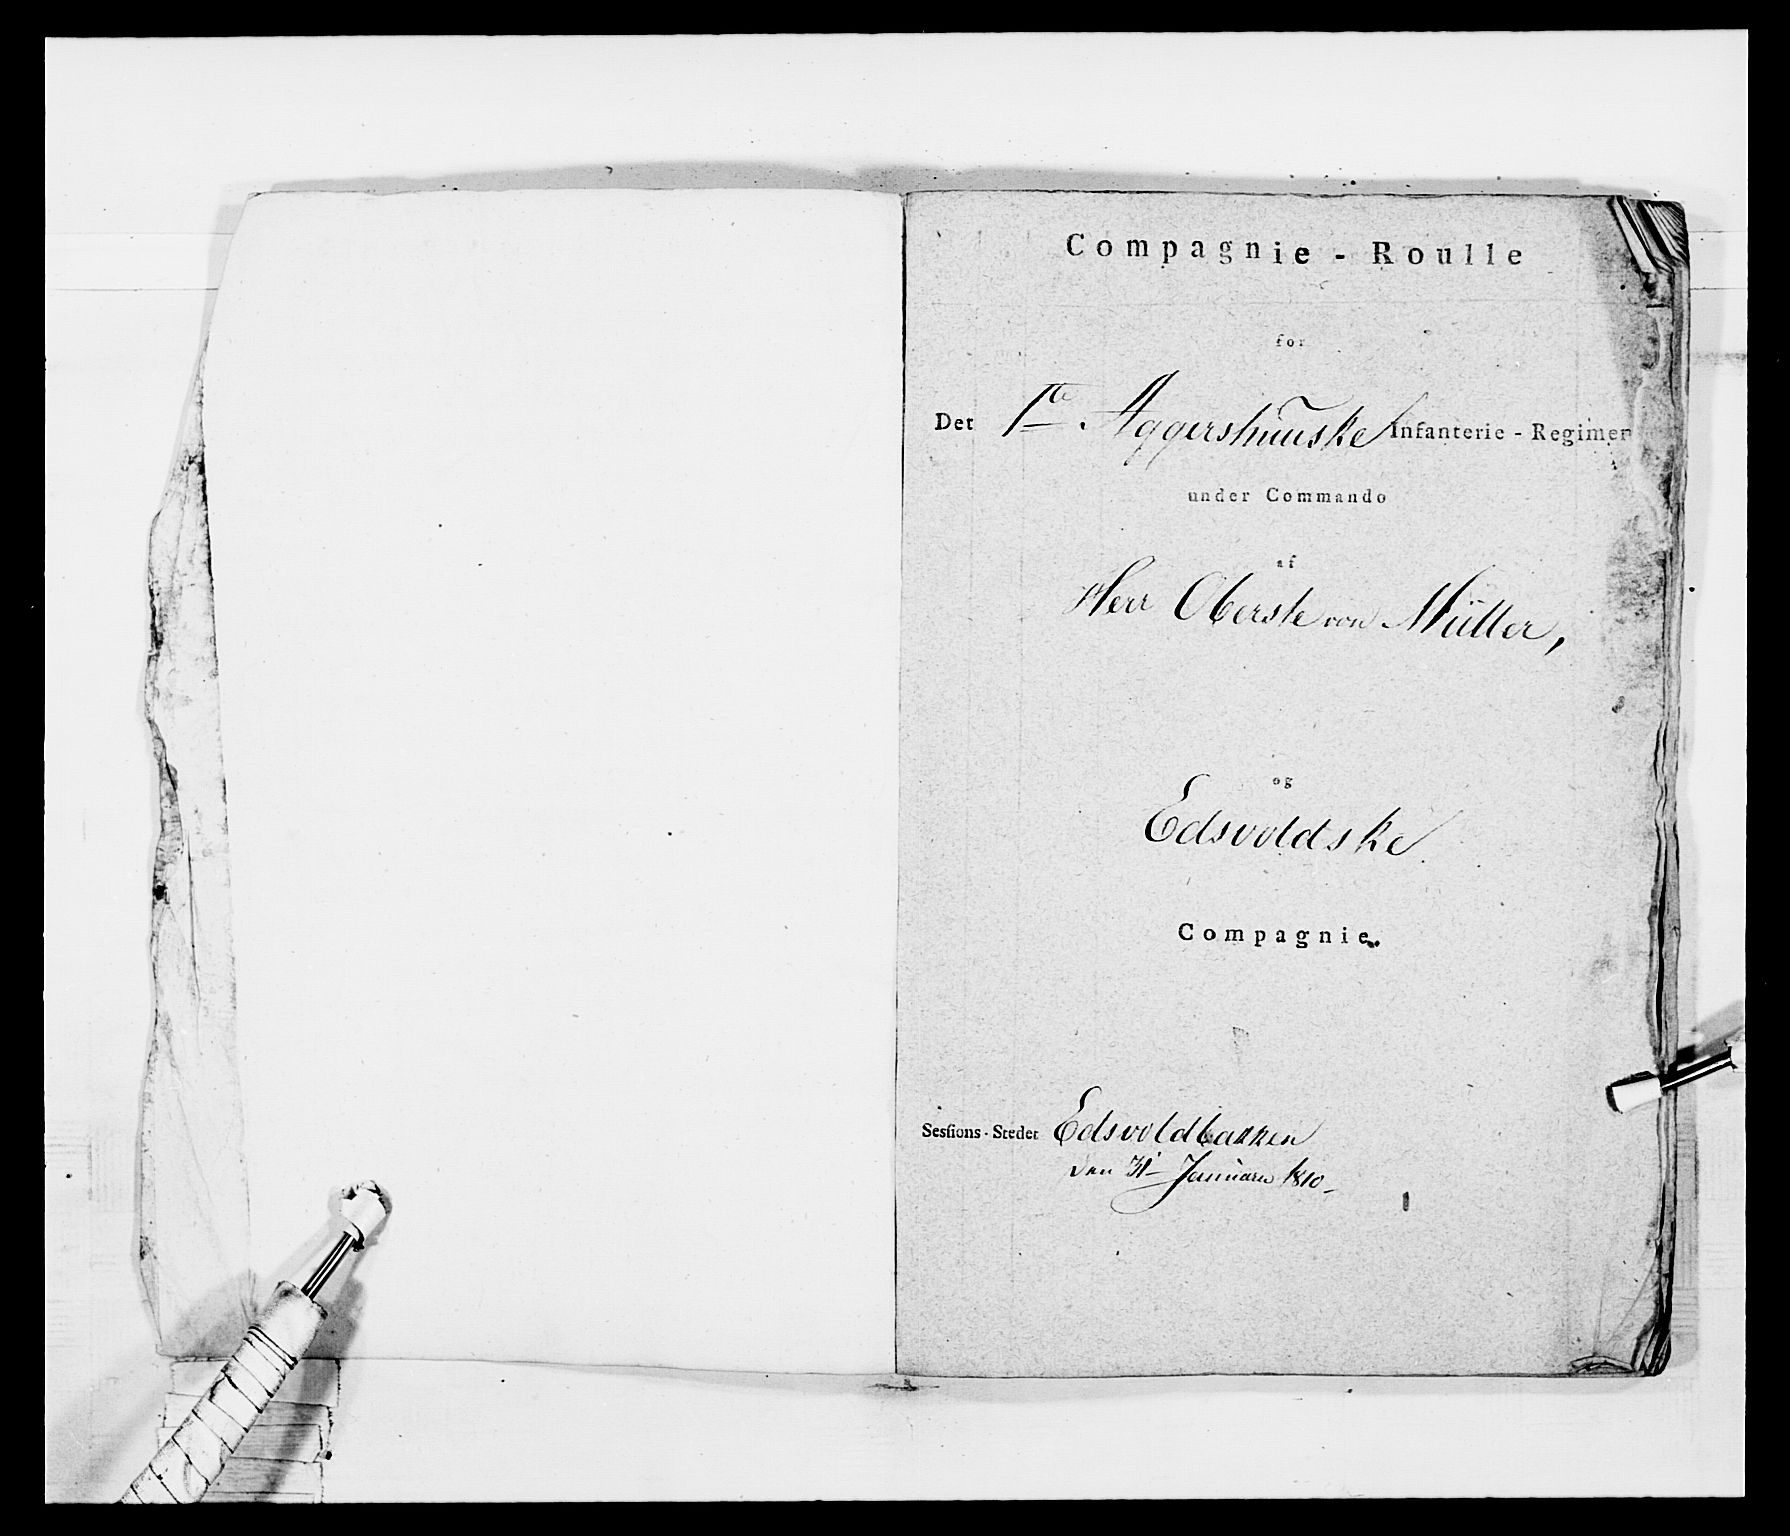 Compagnie - Roulle
for
Det 1te Aggershuuske Infanterie - Regimen
under Commando
af
Herr Oberste von Müller,
og
Edsvoldske
Compagnie.
Sesſions-Stedet Edsvoldbakken
den 31' Januarii 1810